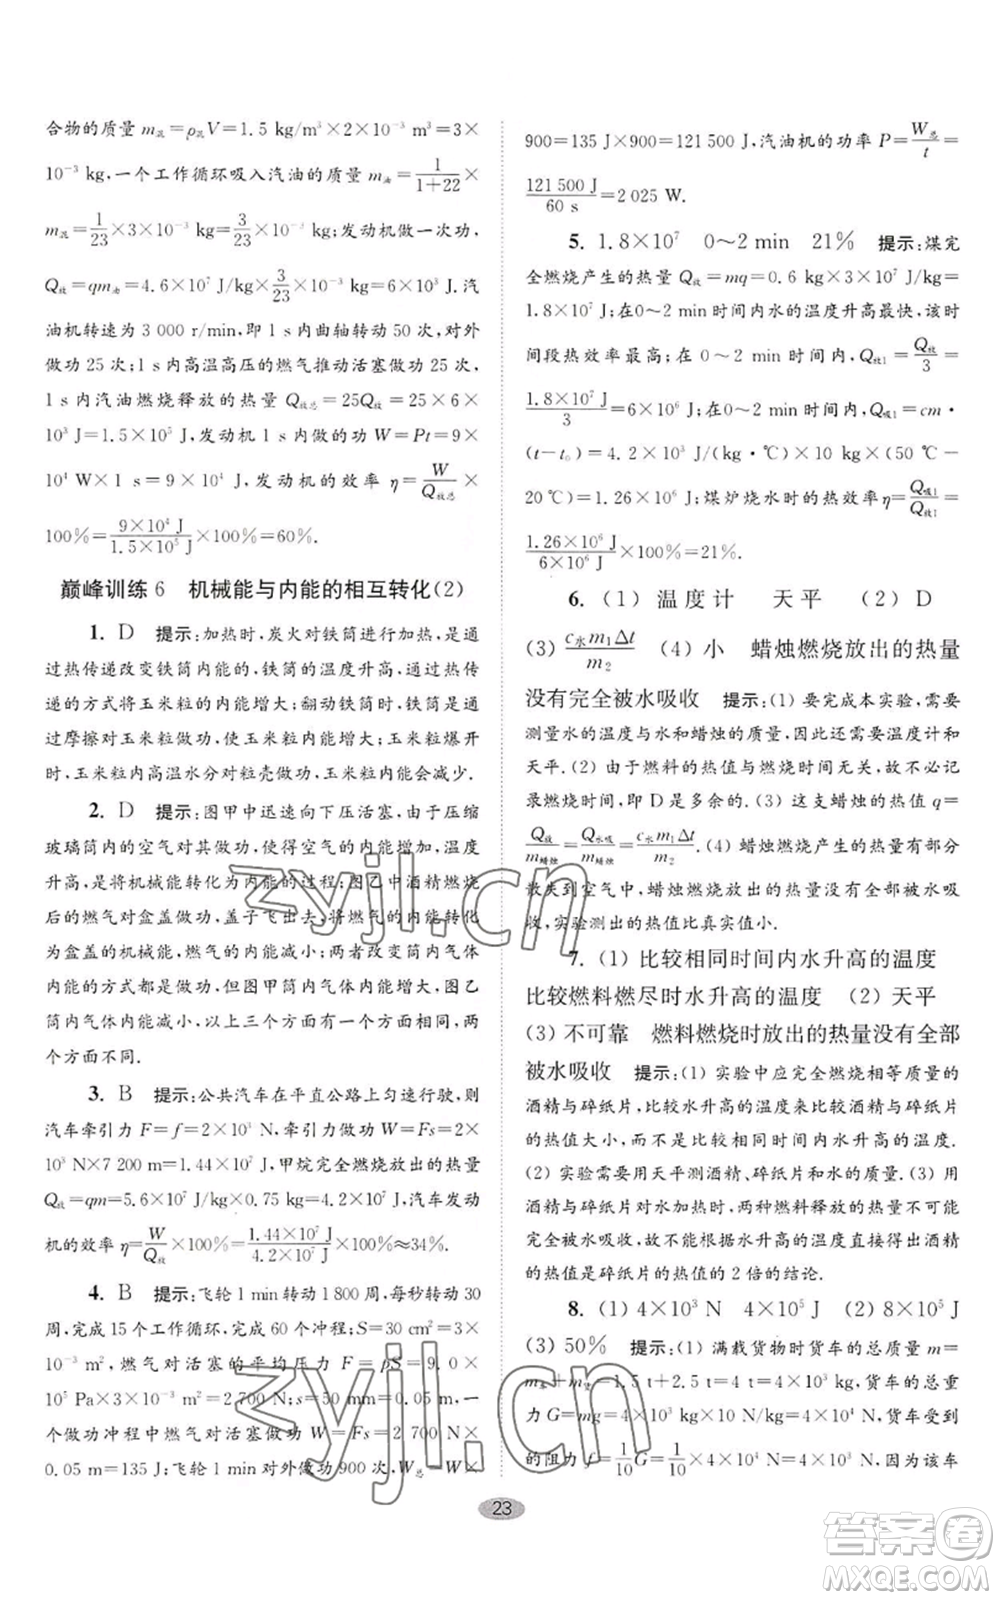 合物的质量 m混=ρ混V=1.5 kg/m³×2×10⁻³ m³=3×
10⁻³ kg,一个工作循环吸入汽油的质量 m油=1/(1+22)×
m混=1/23×3×10⁻³ kg=3/23×10⁻³ kg;发动机做一次功,
Q放=qm油=4.6×10⁷ J/kg×3/23×10⁻³ kg=6×10³ J.汽
油机转速为 3 000 r/min,即 1 s内曲轴转动 50 次,对外
做功 25 次;1 s内高温高压的燃气推动活塞做功 25 次,
1 s内汽油燃烧释放的热量 Q放总=25Q放=25×6×
10³ J=1.5×10⁵ J,发动机 1 s内做的功 W=Pt=9×
10⁴ W×1 s=9×10⁴ J,发动机的效率 η=W/Q放总×
100%=9×10⁴ J/1.5×10⁵ J×100%=60%.
巅峰训练 6 机械能与内能的相互转化(2)
1. D 提示:加热时,炭火对铁筒进行加热,是通
过热传递改变铁筒内能的,铁筒的温度升高,通过热
传递的方式将玉米粒的内能增大;翻动铁筒时,铁筒是通
过摩擦对玉米粒做功,使玉米粒内能增大;玉米粒爆开
时,玉米粒内高温水分对粒壳做功,玉米粒内能减少.
2. D 提示:图甲中迅速向下压活塞,由于压缩
玻璃筒内的空气对其做功,使得空气的内能增大,温度
升高,是将机械能转化为内能的过程;图乙中酒精燃烧
后的燃气对盒盖做功,盖子飞出去,将燃气的内能转化
为盒盖的机械能,燃气的内能减小;两者改变筒内气体
内能的方式都是做功,但图甲筒内气体内能增大,图乙
筒内气体内能减小,以上三个方面有一个方面相同,两
个方面不同.
3. B 提示:公共汽车在平直公路上匀速行驶,则
汽车牵引力 F=f=2×10³ N,牵引力做功 W=Fs=2×
10³ N×7 200 m=1.44×10⁷ J,甲烷完全燃烧放出的热量
Q放=qm=5.6×10⁷ J/kg×0.75 kg=4.2×10⁷ J,汽车发动
机的效率 η=W/Q放×100%=1.44×10⁷ J/4.2×10⁷ J×100%≈34%.
4. B 提示:飞轮 1 min 转动 1 800 周,每秒转动 30
周,完成 15 个工作循环,完成 60 个冲程;S=30 cm²=3×
10⁻³ m²,燃气对活塞的平均压力 F=pS=9.0×
10⁵ Pa×3×10⁻³ m²=2 700 N;s=50 mm=0.05 m,一
个做功冲程中燃气对活塞做功 W=Fs=2 700 N×
0.05 m=135 J;飞轮 1 min 对外做功 900 次,W总=W×
900=135 J×900=121 500 J,汽油机的功率 P=W总/t=
121 500 J/60 s=2 025 W.
5. 1.8×10⁷ 0～2 min 21% 提示:煤完
全燃烧产生的热量 Q放=mq=0.6 kg×3×10⁷ J/kg=
1.8×10⁷ J;在0～2 min 时间内水的温度升高最快,该时
间段热效率最高;在 0～2 min 时间内,Q放1=Q放/3=
1.8×10⁷ J/3=6×10⁶ J;在0～2 min 时间内,Q吸1=cm·
(t-t₀)=4.2×10³ J/(kg·℃)×10 kg×(50 ℃-
20 ℃)=1.26×10⁶ J;煤炉烧水时的热效率η=Q吸1/Q放1=
1.26×10⁶ J/6×10⁶ J×100%=21%.
6. (1) 温度计 天平 (2) D
(3) c水m₁Δt/m₂ (4) 小 蜡烛燃烧放出的热量
没有完全被水吸收 提示:(1) 要完成本实验,需要
测量水的温度与水和蜡烛的质量,因此还需要温度计和
天平.(2) 由于燃料的热值与燃烧时间无关,故不必记
录燃烧时间,即 D 是多余的.(3) 这支蜡烛的热值 q=
Q放/m蜡烛=Q水吸/m蜡烛=c水m₁Δt/m₂.(4) 蜡烛燃烧产生的热量有部分
散失到空气中,蜡烛燃烧放出的热量没有全部被水吸
收,实验测出的热值比真实值小.
7. (1) 比较相同时间内水升高的温度
比较燃料燃尽时水升高的温度 (2) 天平
(3) 不可靠 燃料燃烧时放出的热量没有全部
被水吸收 提示:(1) 实验中应完全燃烧相等质量的
酒精与碎纸片,比较水升高的温度来比较酒精与碎纸片
的热值大小,而不是比较相同时间内水升高的温度.
(2) 实验需要用天平测酒精、碎纸片和水的质量.(3) 用
酒精与碎纸片对水加热时,两种燃料释放的热量不可能
完全被水吸收,故根据水升高的温度直接得出酒精
的热值是碎纸片的热值的 2 倍的结论.
8. (1) 4×10³ N 4×10⁵ J (2) 8×10⁵ J
(3) 50% 提示:(1) 满载货物时货车的总质量 m=
m车+m物=1.5 t+2.5 t=4 t=4×10³ kg,货车的总重
力 G=mg=4×10³ kg×10 N/kg=4×10⁴ N,货车受到
的阻力 f=1/10G=1/10×4×10⁴ N=4×10³ N,因为该车
23
zyjl.cn
zyjl.cn
答案圈
MXQE.COM